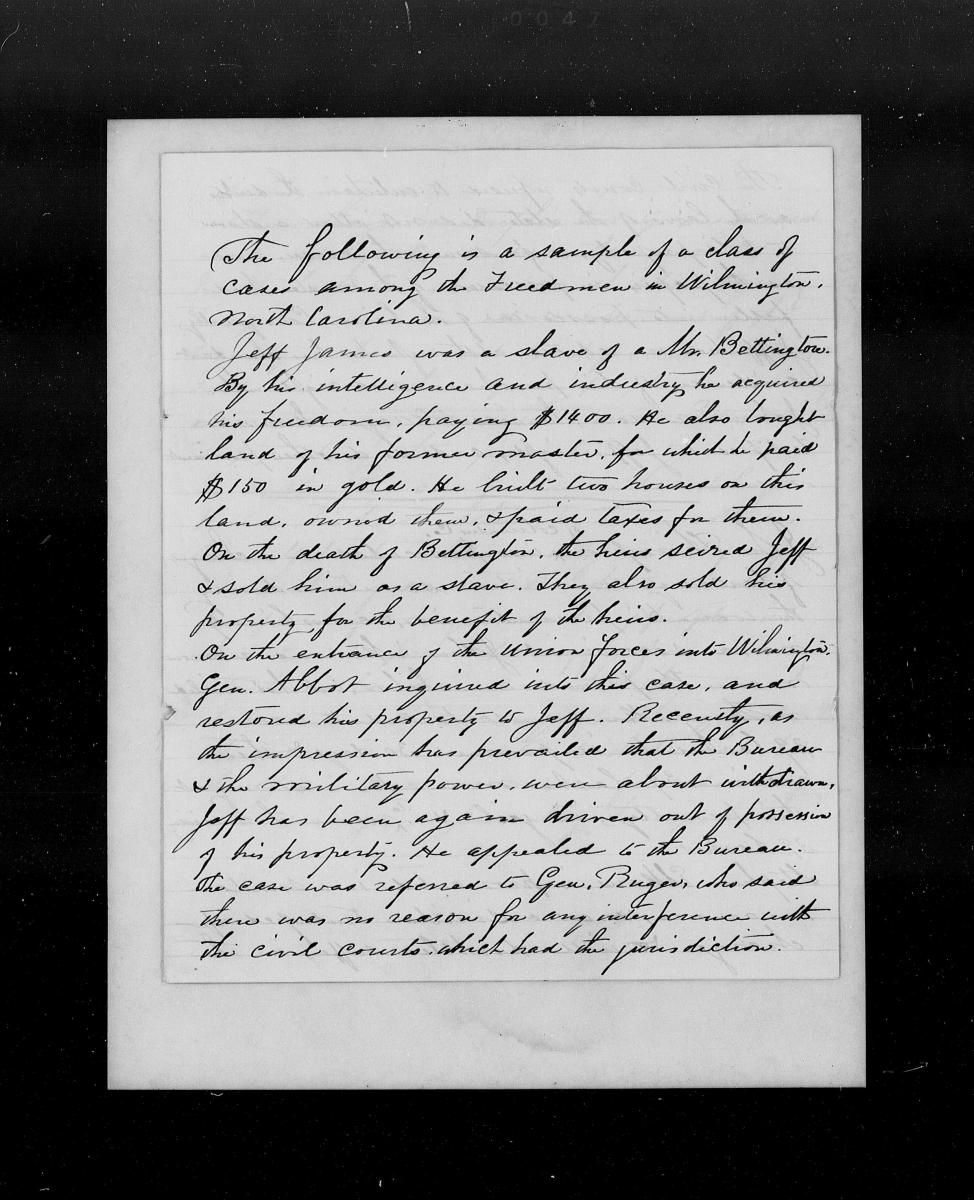 0047
The following is a sample of a class of
cases among the Freedmen in Wilmington,
North Carolina.
Jeff James was a slave of a Mr. Bettington.
By his intelligence and industry he acquired
his freedom, paying $1400. He also bought
land of his former master, for which he paid
$150 in gold. He built two houses on this
land, owned them, & paid taxes for them.
On the death of Bettington, the heirs seized Jeff
& sold him as a slave. They also sold his
property for the benefit of the heirs.
On the entrance of the Union forces into Wilmington,
Gen. Abbot inquired into this case, and
restored his property to Jeff. Recently, as
the impression has prevailed that the Bureau
& the military power, were about withdrawn,
Jeff has been again driven out of possession
of his property. He appealed to the Bureau.
The case was referred to Gen. Ruger, who said
there was no reason for any interference with
the civil courts which had the jurisdiction.